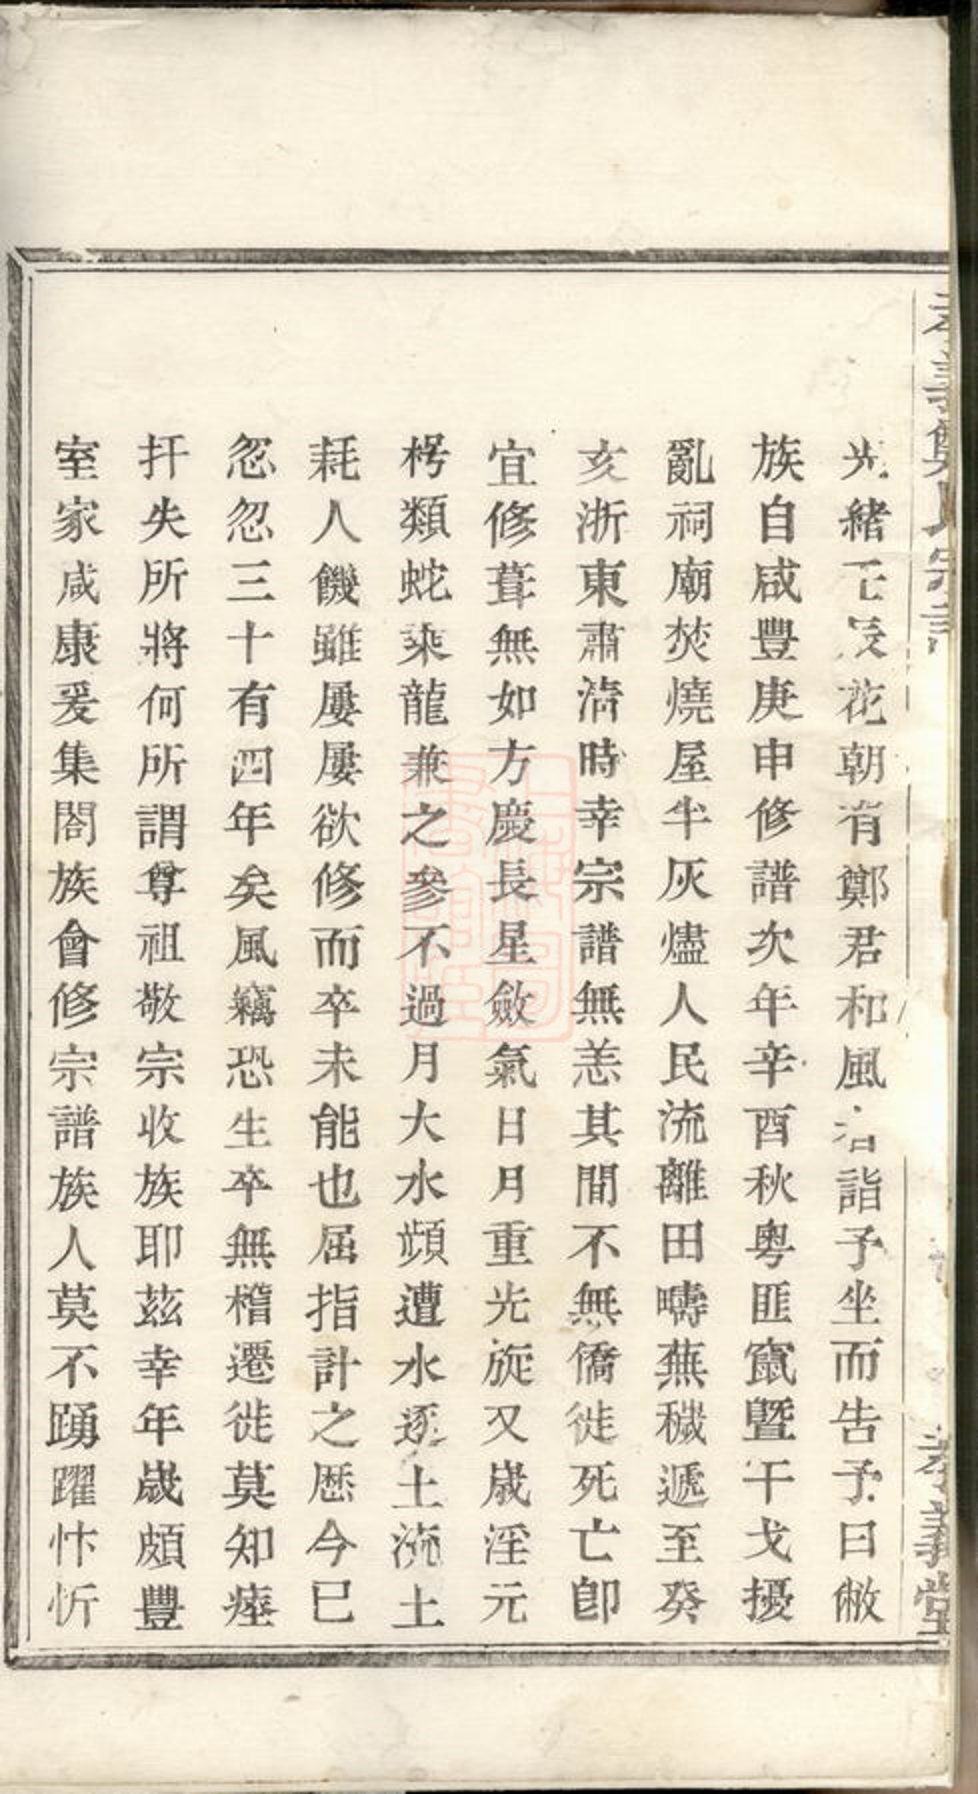 孝義鄭氏宗譜
孝義堂
光緒壬辰花朝有鄭君和風君詣予坐而告予曰敝
族自咸豐庚申修譜次年辛酉秋粵匪竄暨干戈擾
亂祠廟焚燒屋半灰燼人民流離田疇蕪穢遞至癸
亥浙東肅清時幸宗譜無恙其間不無僑徙死亡卽
宜修葺無如方慶長星斂氣日月重光旋又歲淫元
枵類蛇乘龍兼之參不過月大水頻遭水逐土流土
耗人饑雖屢屢欲修而卒未能也屈指計之歷今巳
忽忽三十有四年矣風竊恐生卒無稽遷徙莫知瘞
扞失所將何所謂尊祖敬宗收族耶茲幸年歲頗豐
室家咸康爰集閤族會修宗譜族人莫不踴躍忭忻